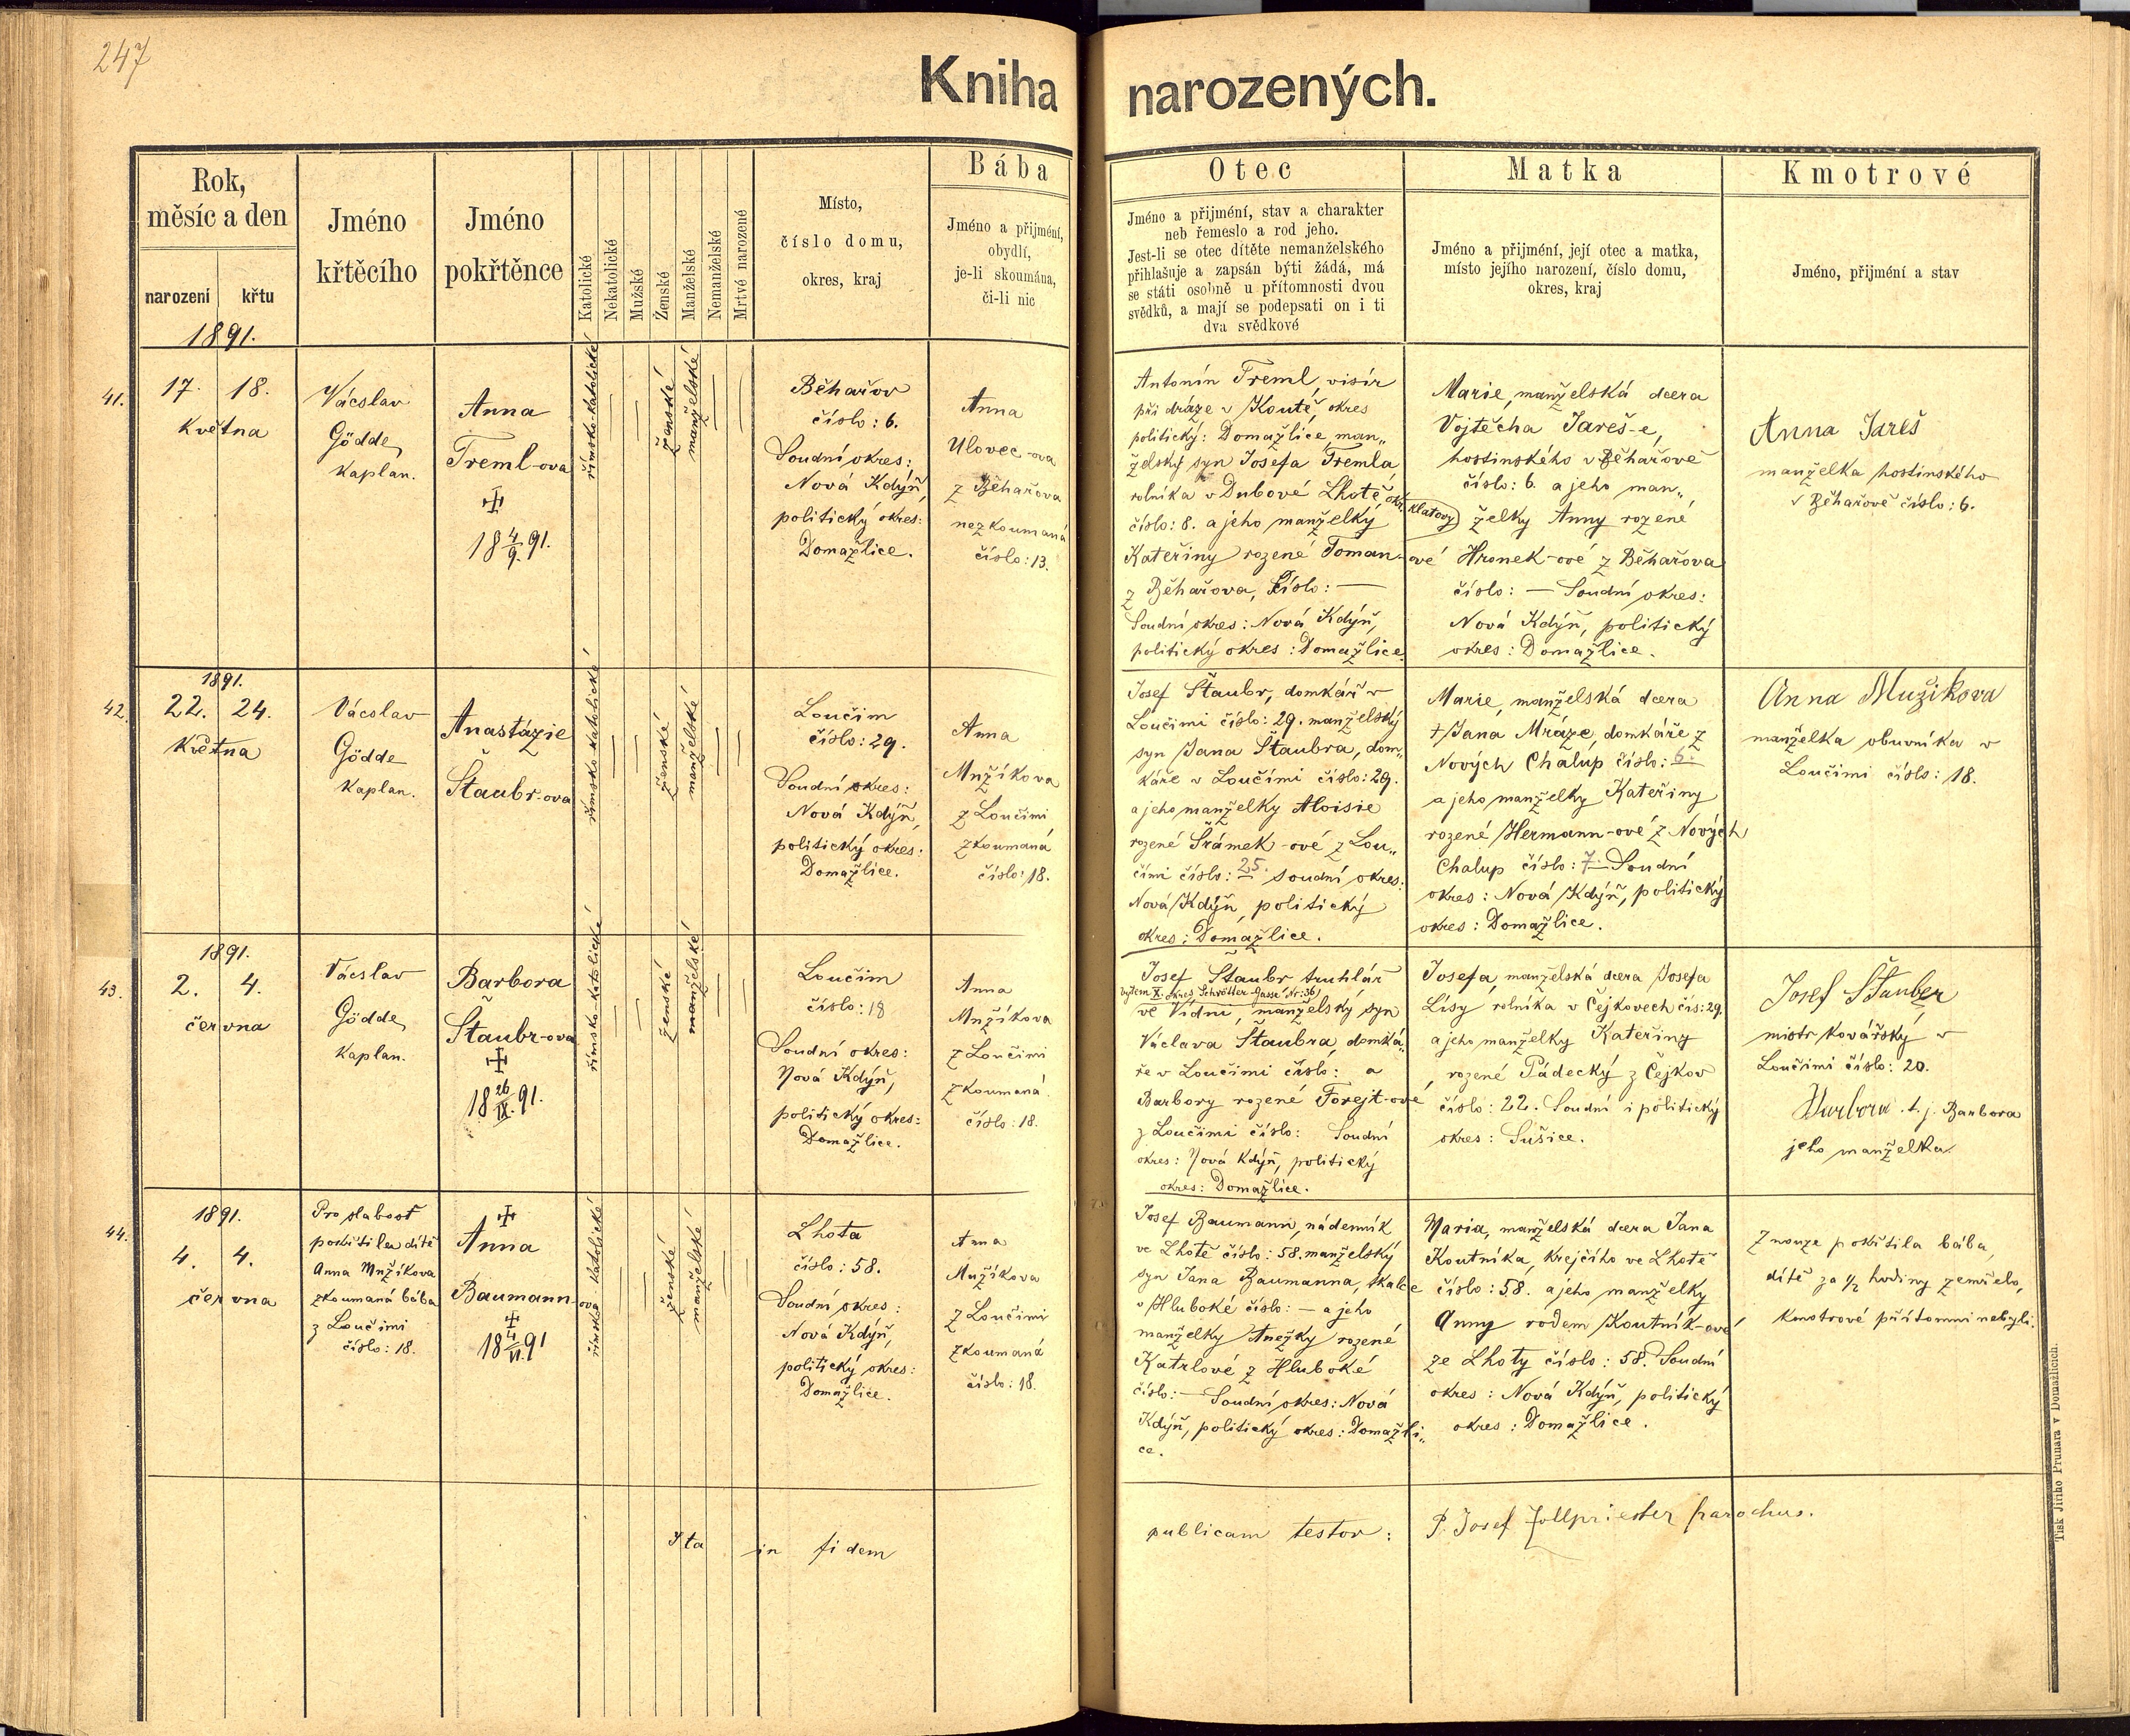 247
Kniha narozených.
Rok,
měsíc a den
narození křtu
Jméno
křtěcího
Jméno
pokřtěnce
Katolické
Nekatolické
Mužské
Ženské
Manželské
Nemanželské
Mrtvé narozené
Místo,
číslo domu,
okres, kraj
Bába
Jméno a přijmění,
obydlí,
je-li skoumána,
či-li nic
Otec
Jméno a přijmění, stav a charakter
neb řemeslo a rod jeho.
Jest-li se otec dítěte nemanželského
přihlašuje a zapsán býti žádá, má
se státi osobně u přítomnosti dvou
svědků, a mají se podepsati on i ti
dva svědkové
Matka
Jméno a přijmění, její otec a matka,
místo jejího narození, číslo domu,
okres, kraj
Kmotrové
Jméno, přijmění a stav
1891.
41.
17. 18.
Května
Vácslav
Gödde,
Kaplan.
Anna
Treml-ova
18 4/9. 91.
římsko-katolické
ženské
manželské
Běhařov
číslo: 6.
Soudní okres:
Nová Kdýň,
politický okres:
Domažlice.
Anna
Ulovec-ova
z Běhařova
nezkoumaná
číslo: 13.
Antonín Treml, visír
při dráze v Koutě, okres
politický: Domažlice, man„
želský syn Josefa Tremla
rolníka v Dubové Lhotě, okr. Klatovy
číslo: 8. a jeho manželky
Kateřiny rozené Toman-ové
z Běhařova, číslo: —
Soudní okres: Nová Kdýň,
politický okres: Domažlice.
Marie, manželská dcera
Vojtěcha Jareš-e,
hostinského v Běhařově
číslo: 6. a jeho man„
želky Anny rozené
Hronek-ové z Běhařova
číslo: — Soudní okres:
Nová Kdýň, politický
okres: Domažlice.
Anna Jareš
manželka hostinského
v Běhařově číslo: 6.
42.
1891.
22. 24.
Května
Vácslav
Gödde
Kaplan.
Anastázie
Štaubr-ova
římsko katolické
ženské
manželské
Loučim
číslo: 29.
Soudní okres:
Nová Kdýň,
politický okres:
Domažlice.
Anna
Mužíkova
z Loučimi
zkoumaná
číslo: 18.
Josef Štaubr, domkář v
Loučimi číslo: 29. manželský
syn Jana Štaubra, dom„
káře v Loučimi číslo: 29.
a jeho manželky Aloisie
rozené Šrámek-ové z Lou„
čimi číslo: 25. soudní okres:
Nová Kdýň, politický
okres: Domažlice.
Marie, manželská dcera
† Jana Mráze, domkáře z
Nových Chalup číslo: 6.
a jeho manželky Kateřiny
rozené Hermann-ové z Nových
Chalup číslo: 7. Soudní
okres: Nová Kdýň, politický
okres: Domažlice.
Anna Mužikova
manželka obuvníka v
Loučimi číslo: 18.
43.
1891.
2. 4.
června
Vácslav
Gödde,
Kaplan.
Barbora
Štaubr-ova
18 26/IX. 91.
římsko-katolické
ženské
manželské
Loučim
číslo: 18
Soudní okres:
Nová Kdýň,
politický okres:
Domažlice.
Anna
Mužíkova
z Loučimi
zkoumaná
číslo: 18.
Josef Štaubr truhlář
bytem X. okres, Schrötter-Gasse Nr: 36
ve Vídni, manželský syn
Václava Štaubra, domká„
ře v Loučimi číslo: a
Barbory rozené Forejt-ové
z Loučimi číslo: Soudní
okres: Nová Kdýň, politický
okres: Domažlice.
Josefa, manželská dcera Josefa
Lísy rolníka v Čejkovech čís: 29.
a jeho manželky Kateřiny
rozené Pádecký z Čejkov
číslo: 22. Soudní i politický
okres: Sušice.
Josef Štauber
mistr kovářský v
Loučimi číslo: 20.
Barbora t. j. Barbora
jeho manželka
44.
1891.
4. 4.
června
Pro slabost
pokřtila dítě
Anna Mužíkova
zkoumaná bába
z Loučimi
číslo: 18.
Anna
Baumann-ova
18 4/VI. 91
římsko-katolické
ženské
manželské
Lhota
číslo: 58.
Soudní okres:
Nová Kdýň,
politický okres:
Domažlice.
Anna
Mužíkova
z Loučimi
zkoumaná
číslo: 18.
Josef Baumann, nádenník
ve Lhotě číslo: 58. manželský
syn Jana Baumanna, tkalce
v Hluboké číslo: — a jeho
manželky Anežky rozené
Katrlové z Hluboké
číslo: — Soudní okres: Nová
Kdýň, politický okres: Domažli„
ce.
Maria, manželská dcera Jana
Koutníka, krejčího ve Lhotě
číslo: 58. a jeho manželky
Anny rodem Koutník-ové
ze Lhoty číslo: 58. Soudní
okres: Nová Kdýň, politický
okres: Domažlice.
Z nouze pokřtila bába,
dítě za 1/2 hodiny zemřelo,
kmotrové přítomni nebyli.
Ita in fidem publicam testor: P. Josef Zollpriester parochus.
Tisk Jiřího Prunara v Domažlicích.